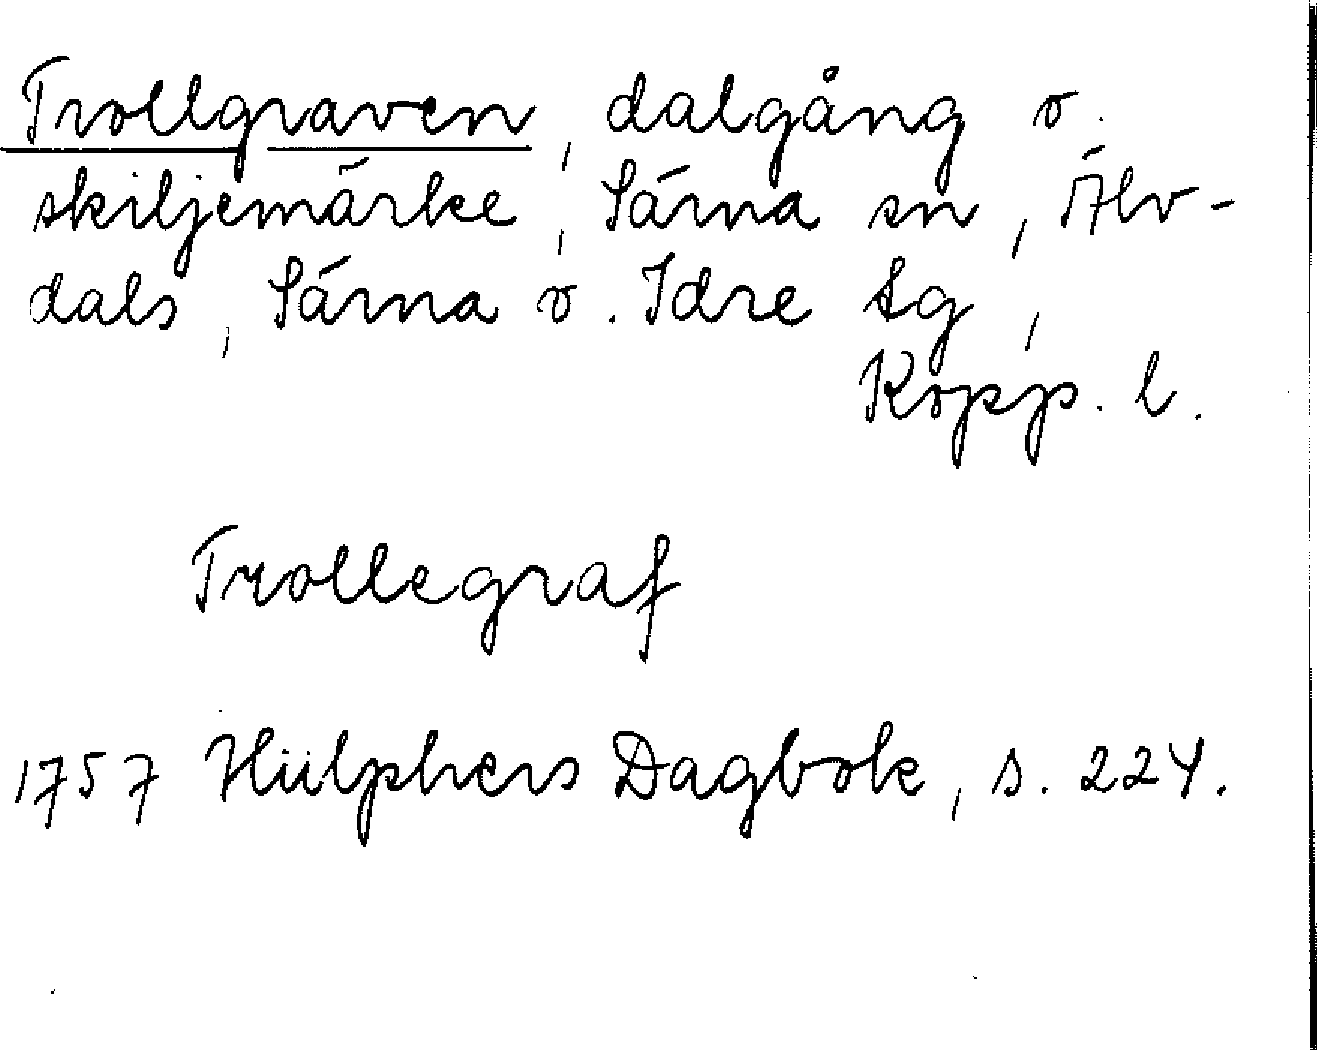 Trollgraven, dalgång o.
skiljemärke, Särna sn, Älv-
dals, Särna o. Idre tg,
Kopp. l.
Trollegraf
1757 Hülphers Dagbok, s. 224.